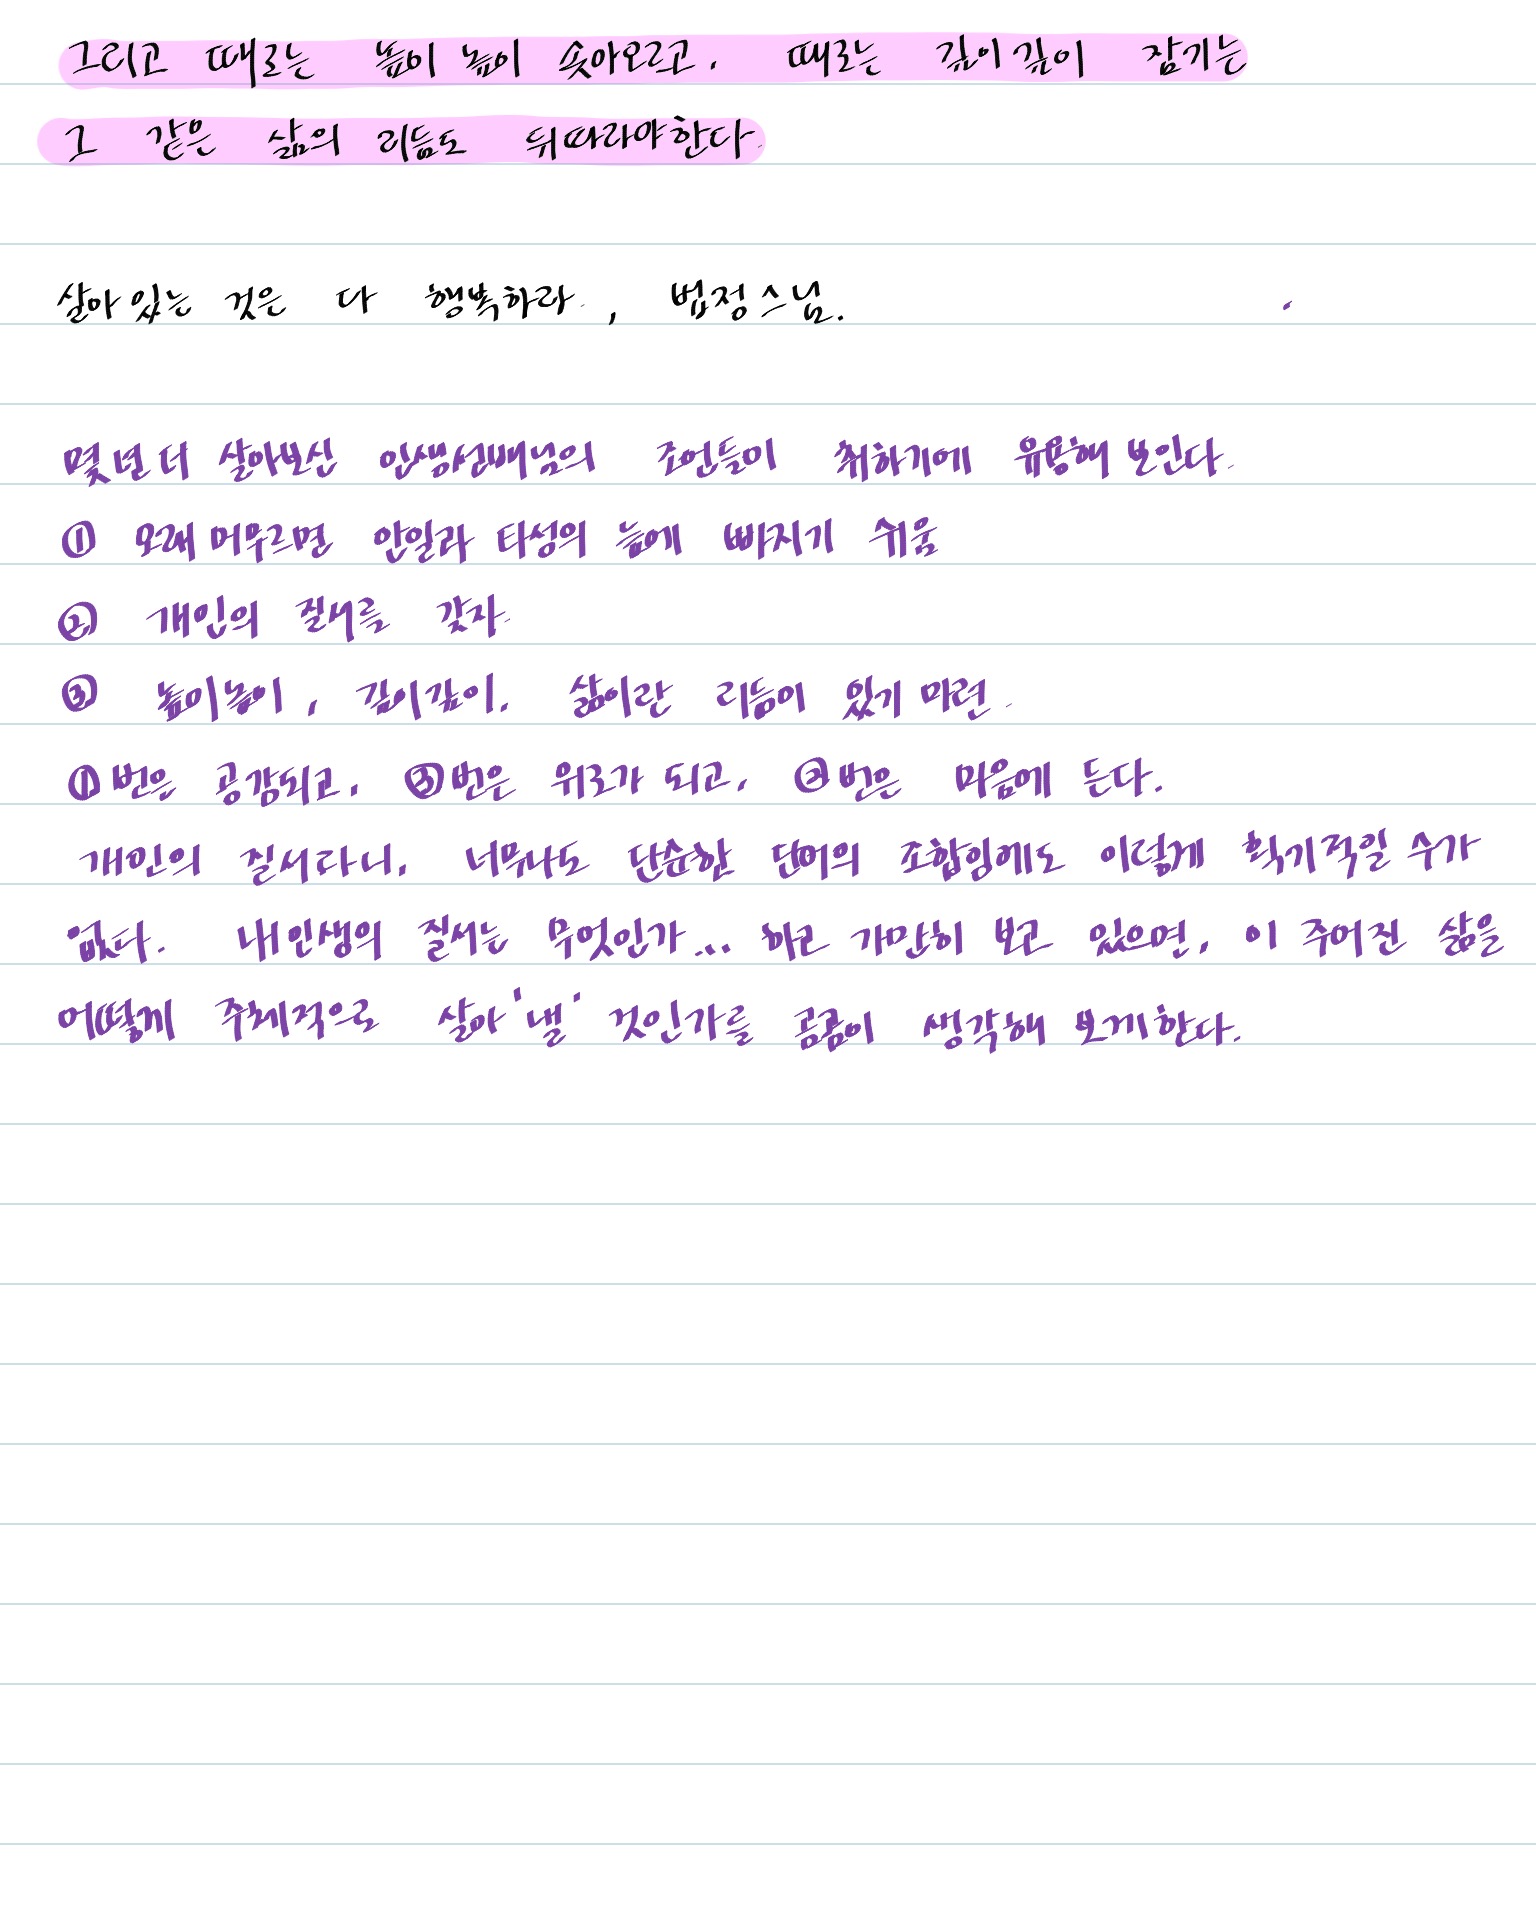 그리고 때로는 높이 높이 솟아오르고, 때로는 깊이 깊이 잠기는
그 같은 삶의 리듬도 뒤따라야한다.
살아 있는 것은 다 행복하라. , 법정스님.
몇 년 더 살아보신 인생선배님의 조언들이 취하기에 유용해 보인다.
① 오래 머무르면 안일과 타성의 늪에 빠지기 쉬움
② 개인의 질서를 갖자.
③ 높이높이, 깊이깊이. 삶이란 리듬이 있기 마련.
①번은 공감되고, ③번은 위로가 되고, ②번은 마음에 든다.
개인의 질서라니, 너무나도 단순한 단어의 조합임에도 이렇게 획기적일 수가
없다. 내 인생의 질서는 무엇인가... 하고 가만히 보고 있으면, 이 주어진 삶을
어떻게 주체적으로 살아'낼' 것인가를 곰곰이 생각해 보게한다.